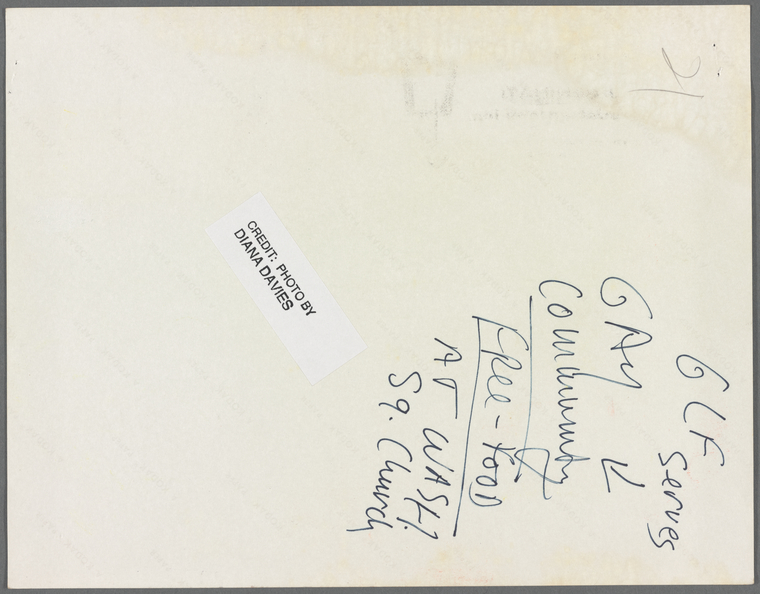 21
GLF serves
GAY
Community
Free-Food
AT WASH.
Sq. Church
CREDIT: PHOTO BY
DIANA DAVIES